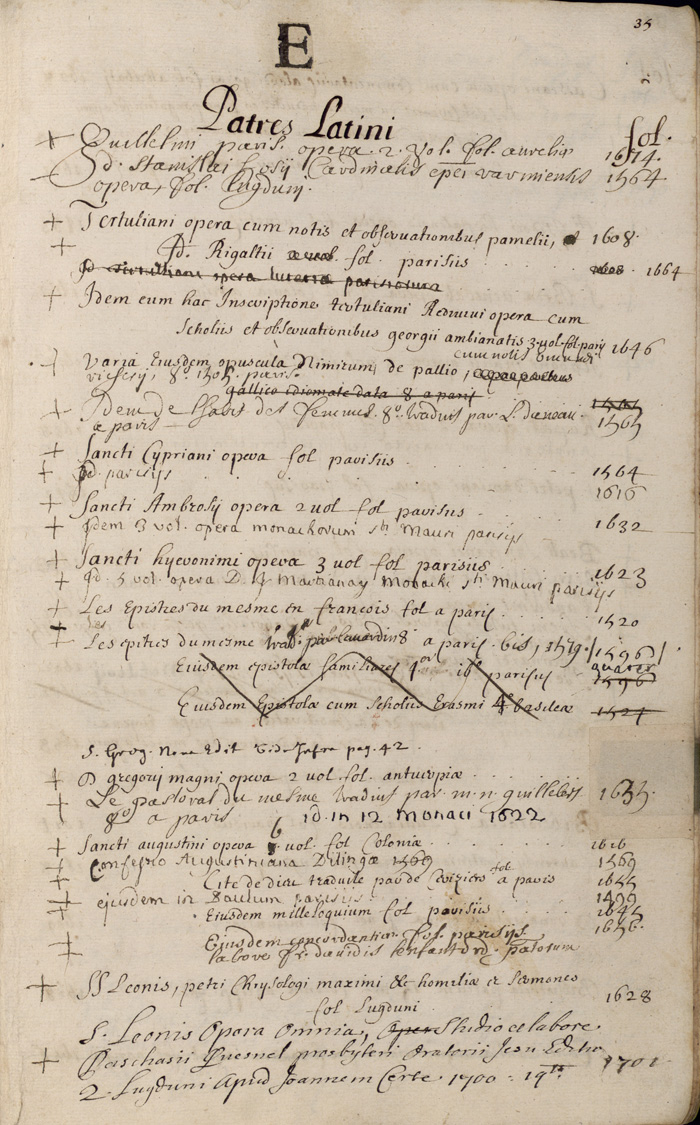 35
E
Patres Latini
fol.
+ Guillelmi paris. opera. 2. vol. fol. aureliæ 1674.
D. Stanislai hosij Cardinalis epei varmiensis 1564
opera, fol. lugduni.
+ Tertuliani opera cum notis et observationibus pamelii, 1608.
+ Id. Rigaltii fol. parisiis 1664
Id tertuliani opera lutetiæ parisiorum
+ Idem cum hac Inscriptione tertuliani Redivivi opera cum
scholiis et observationibus georgii ambianatis 3 vol. fol. parij 1646
Varia Eiusdem opuscula Nimirum, de pallio, cum notis
8º. 1505. paris.
gallico idiomate data 8 a paris
+ Idem de des femmes. 8º. traduit par L.
a paris 1565
+ Sancti Cypriani opera fol parisiis 1564
+ Id. parisijs 1616
+ Sancti Ambrosij opera 2 vol fol parisiis 1632
+ Idem 3 vol. opera monachorum sti Mauri parisijs
+ Sancti hyeronimi opera 3 vol fol parisiis 1623
+ Id. 5 vol. opera D. J Martianay Monachi sti Mauri parisijs
+ Les Epistres du mesme en francois fol a paris 1520
+ Les epitres du mesme trad. a paris. bis, 1579. 1596
Eiusdem epistolæ familiares 4or ib parisiis quater 1596
Eiusdem Epistolæ cum Scholiis Erasmi 4º basileæ 1524
S. Greg. Nova Edit Vide Infra pag. 42.
+ D gregorij magni opera 2 vol. fol. antuerpiæ
+ Le pastoral du mesme traduit par. m. n. guillebert 1635.
8º a paris id in 12 Monaci 1622
+ Sancti augustini opera 6 vol fol Coloniæ 1616
+ Confessio Augustiniana Dilingæ 1569 1569
+ Cité de dieu traduite par de Ceriziers fol a paris 1655
+ ejusdem in parisiis 1499
+ Eiusdem milleloquium fol parisiis 1645
Eiusdem concordantiæ fol. parisijs 1656.
labore fr. davidis lenfant ord.
+ SS Leonis, petri Chrysologi maximi &c homiliæ et Sermones
fol Lugduni 1628
S. Leonis Opera Omnia, Studio et labore
+ Paschasii Quesnel presbyteri Oratorii Jesu Editio
2. Lugduni Apud Joannem Certe. 1700 1701